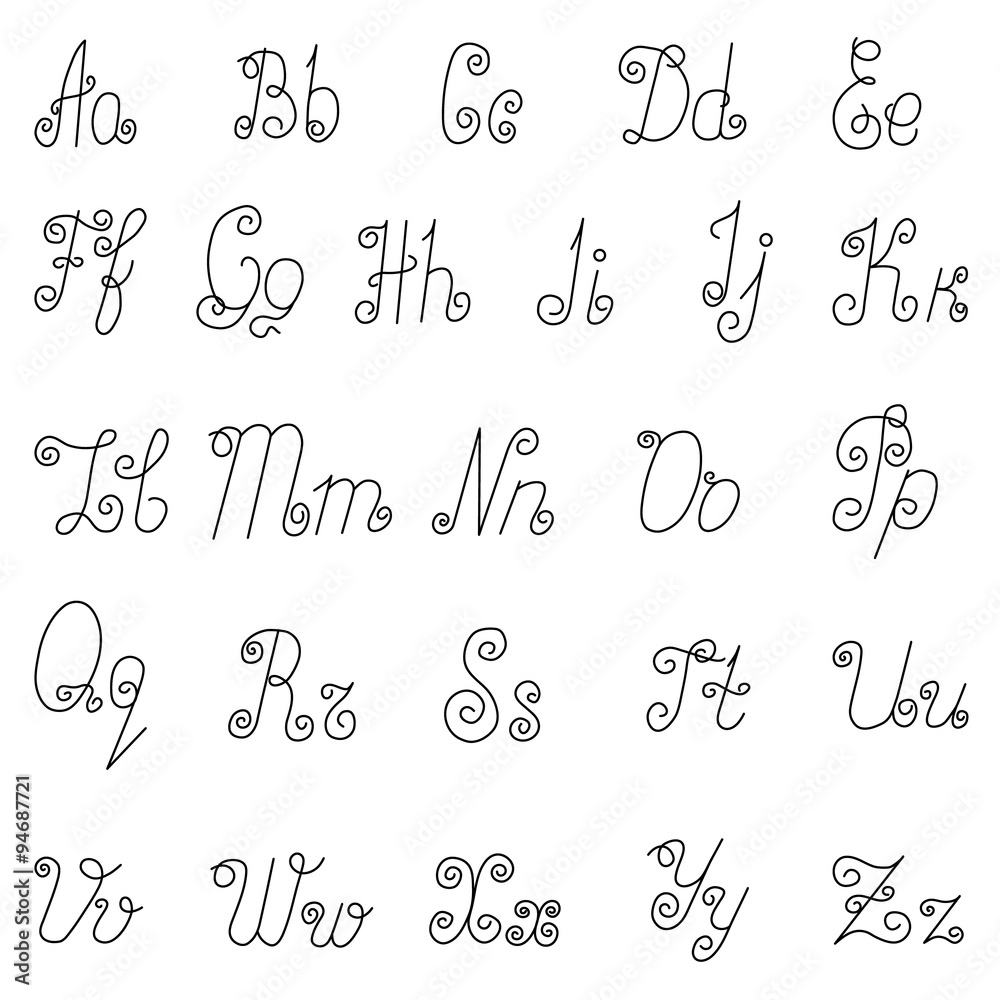 Aa Bb Cc Dd Ee
Ff Gg Hh Ii Jj Kk
Ll Mm Nn Oo Pp
Qq Rr Ss Tt Uu
Vv Ww Xx Yy Zz
Adobe Stock | #94687721